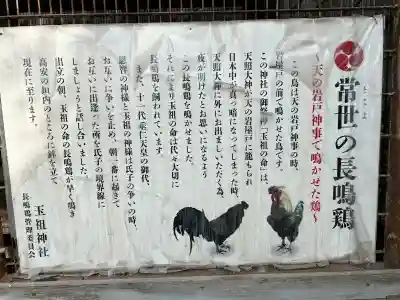 常世の長鳴鶏
とこよ
～天の岩戸神事で鳴かせた鶏～
この鳥は天の岩戸神事の時、
岩屋戸の前で鳴かせた鳥です。
この神社の御祭神「玉祖の命」は、
天照大神が天の岩屋戸に籠もられ
日本中が真っ暗になってしまった時、
天照大神に外にお出ましいただく為、
夜が明けたとお思いになるよう
この長鳴鶏を鳴かせました。
それにより玉祖の命は代々大切に
長鳴鶏を飼われています。
また、十一代垂仁天皇の御代、
恩智の神様と玉祖の神様は氏子の争いの時、
お互いに争いを止め、朝一番に起きて
お互いに出逢った所を氏子の境界線に
しましょうと話し合いました。
出立の朝、玉祖の命の長鳴鶏が早く鳴き
高安の垣内のところに絆を立て
現在に至ります。
玉祖神社
長鳴鶏管理委員会